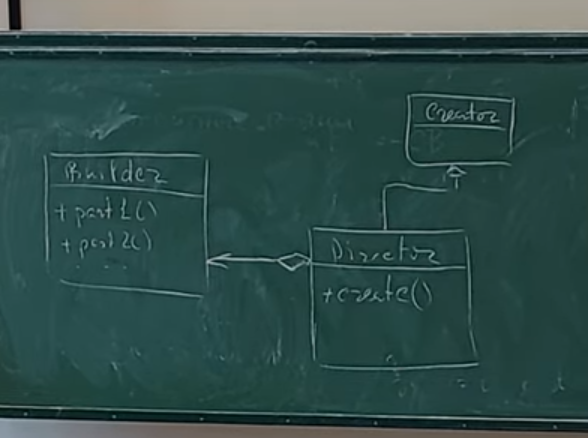 Creator
Builder
+ part1()
+ part2()
. . .
Director
+create()